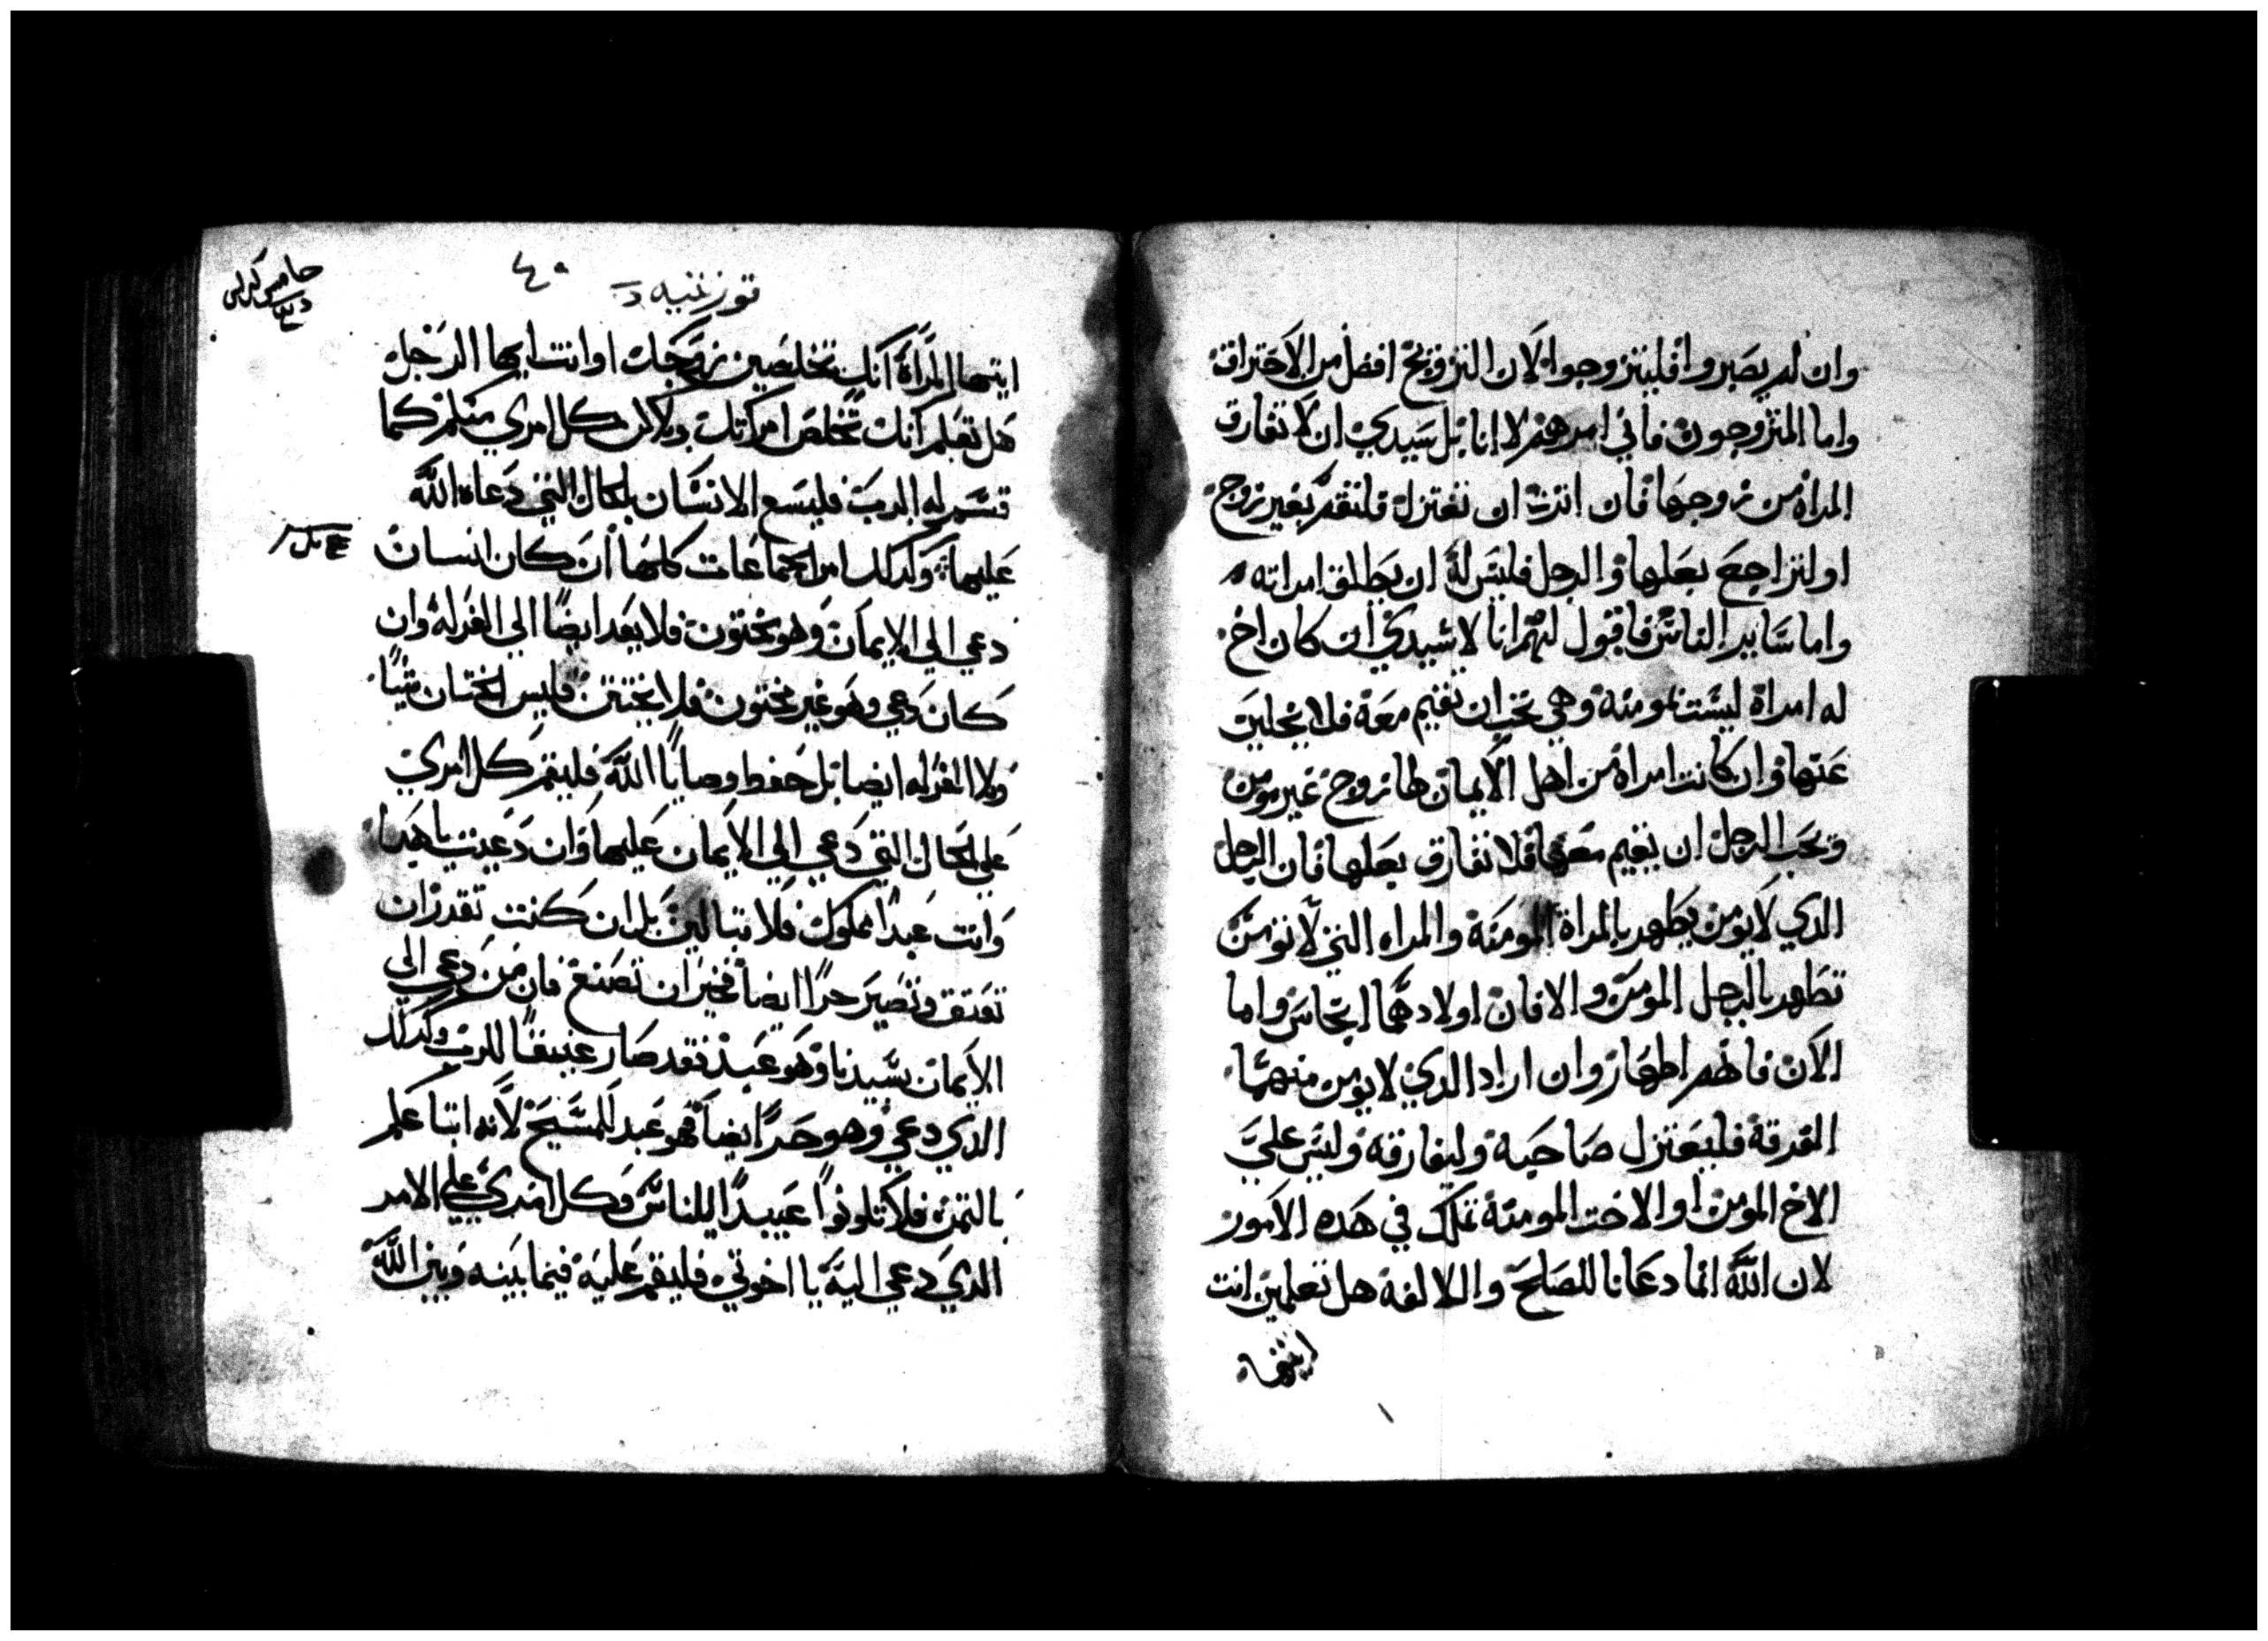 وان لم يصبروا فليتزوجوا لان التزويج افضل من الاحتراق
واما المتزوجون فاني امرهم لا انا بل سيدي ان لا تفارق
المراة من زوجها فان اثرت ان تعتزل فلتقم بغير زوج
او لتراجع بعلها والرجل فليس له ان يطلق امراته
واما ساير الناس فاقول لهم انا لا سيدي ان كان اخ
له امراة ليست بمومنة وهي تحب ان تقيم معه فلا يخلين
عنها وان كانت امراة من اهل الايمان لها زوج غير مومن
ويحب الرجل ان يقيم معها فلا تفارق بعلها فان الرجل
الدي لا يومن يطهر بالمراة المومنة والمراه التي لا تومن
تطهر بالرجل المومن والا فان اولادهما انجاس واما
الان فانهم اطهار وان اراد الدي لا يومن منهما
الفرقة فليعتزل صاحبه وليفارقه وليس علي
الاخ المومن او الاخت المومنة تملك في هده الامور
لان الله انما دعانا للصلح والالفة هل تعلمين انت
ايتها
٤٥
ايتها المراة انك تخلصين زوجك او انت ايها الرجل
هل تعلم انك تخلص امراتك ولاكن كل امري منكم كما
قسم له الرب فليسع الانسان بالحال التي دعاه الله
عليها وكدلك امر الجماعات كلها ان كان انسان
دعي الي الايمان وهو مختون فلا يعد ايضا الي الغرلة وان
كان دعي وهو غير مختون فلا يختتن فليس الختان شيا
ولا الغرله ايضا بل حفظ وصايا الله فليقم كل امري
علي الحال التي دعي الي الايمان عليها وان دعيت يا هدا
وانت عبدا مملوك فلا تبالين بل ان كنت تقدر ان
تعتق وتصير حرا ايضا فخير ان تصنع فان من دعي الي
الايمان بسيدنا وهو عبد فقد صار عتيقا للرب وكدلك
الدي دعي وهو حر ايضا فهو عبد للمسيح لانه ابتاعكم
بالثمن فلا تكونوا عبيدا للناس وكل امري علي الامر
الدي دعي اليه يا اخوتي فليقم عليه فيما بينه وبين الله